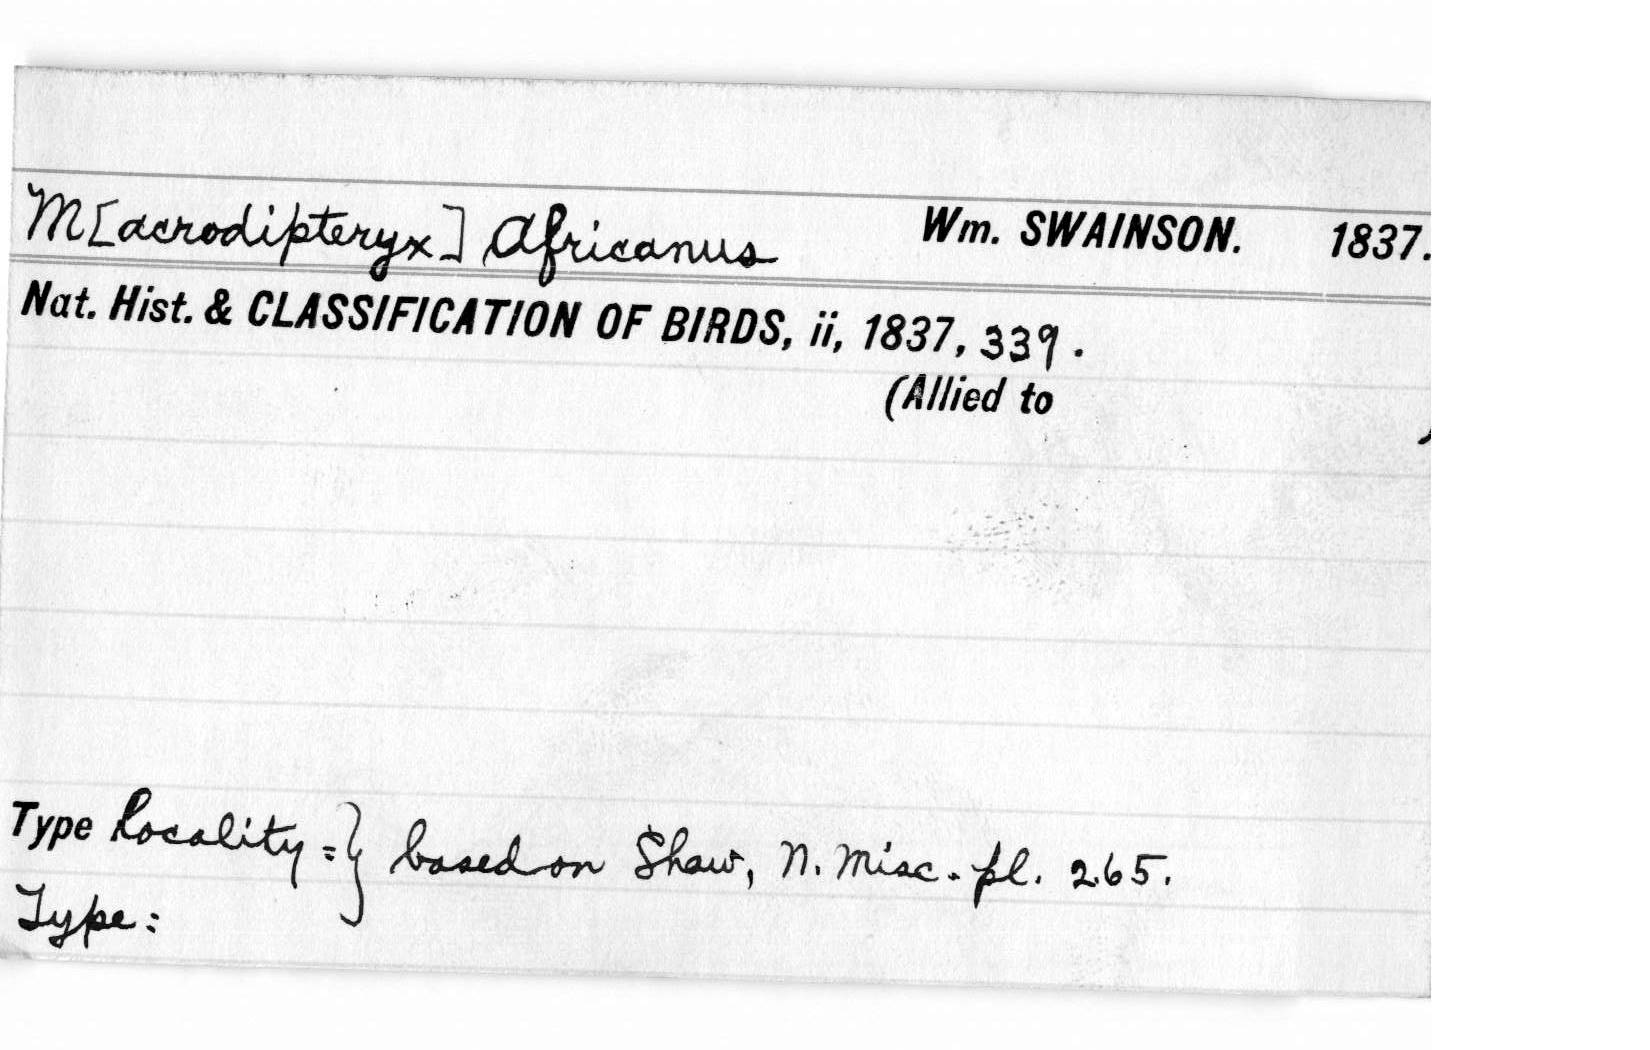 M[acrodipteryx] Africanus Wm. SWAINSON. 1837.
Nat. Hist. & CLASSIFICATION OF BIRDS, ii, 1837, 339.
(Allied to )
Type Locality = } based on Shaw, N. Misc. pl. 265.
Type: